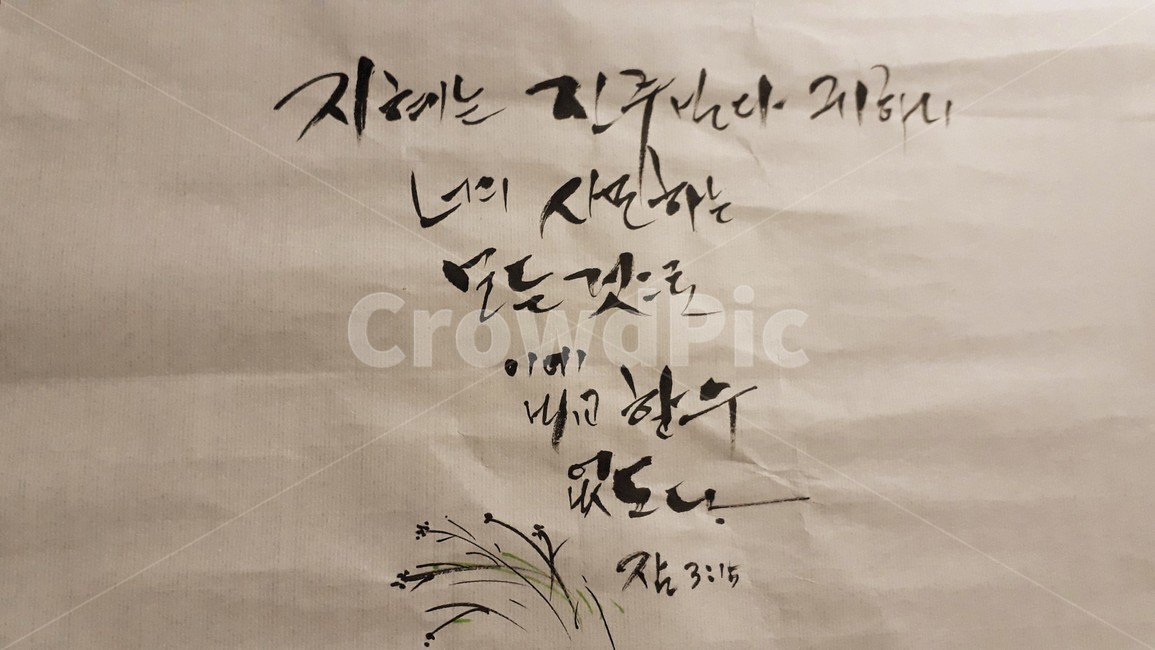 지혜는 진주보다 귀하니
너의 사모하는
모든 것으로
이에
비교 할 수
없도다
잠 3:15
CrowdPic